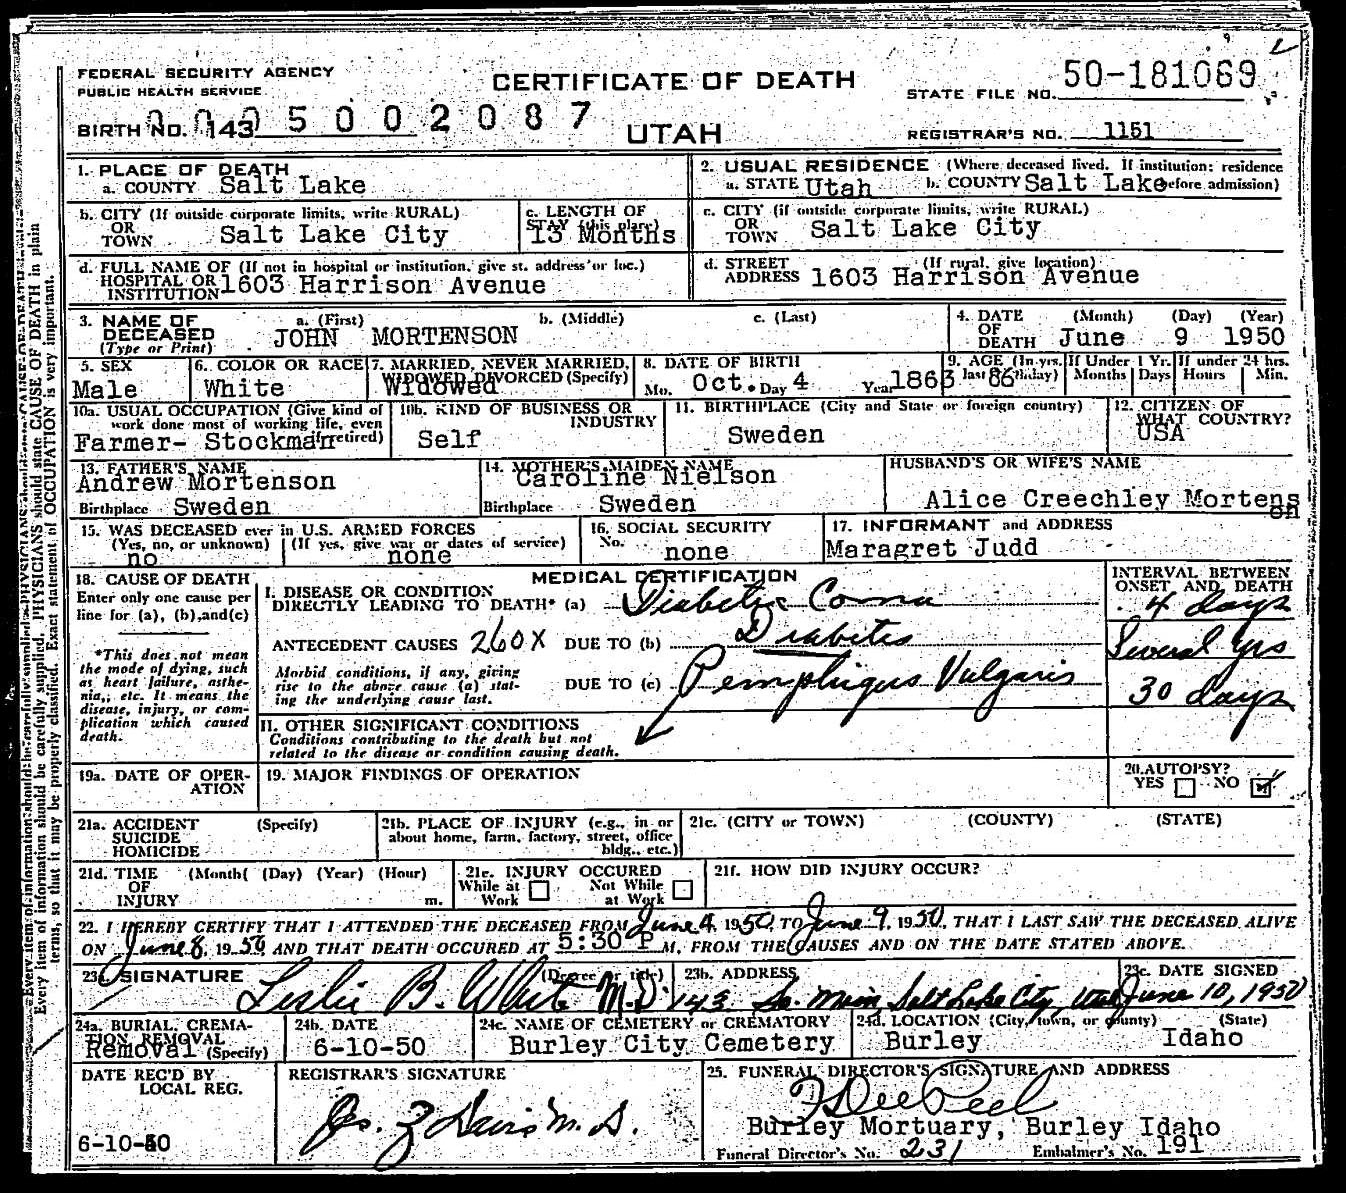 FEDERAL SECURITY AGENCY
PUBLIC HEALTH SERVICE
CERTIFICATE OF DEATH
UTAH
STATE FILE NO. 50-181069
BIRTH NO. 143
0005002087
REGISTRAR'S NO. 1151
1. PLACE OF DEATH
a. COUNTY Salt Lake
2. USUAL RESIDENCE (Where deceased lived. If institution: residence before admission)
a. STATE Utah b. COUNTY Salt Lake
b. CITY (If outside corporate limits, write RURAL) OR TOWN Salt Lake City
c. LENGTH OF STAY (this place) 13 Months
c. CITY (if outside corporate limits, write RURAL) OR TOWN Salt Lake City
d. FULL NAME OF (If not in hospital or institution, give st. address or loc.) HOSPITAL OR INSTITUTION 1603 Harrison Avenue
d. STREET ADDRESS (If rural, give location) 1603 Harrison Avenue
3. NAME OF DECEASED (Type or Print) a. (First) b. (Middle) c. (Last)
JOHN MORTENSON
4. DATE OF DEATH (Month) (Day) (Year)
June 9 1950
5. SEX Male
6. COLOR OR RACE White
7. MARRIED, NEVER MARRIED, WIDOWED, DIVORCED (Specify) Widowed
8. DATE OF BIRTH Mo. Oct. Day 4 Year 1863
9. AGE (In yrs. last birthday) 86 If Under 1 Yr. Months Days If under 24 hrs. Hours Min.
10a. USUAL OCCUPATION (Give kind of work done most of working life, even if retired) Farmer- Stockman
10b. KIND OF BUSINESS OR INDUSTRY Self
11. BIRTHPLACE (City and State or foreign country) Sweden
12. CITIZEN OF WHAT COUNTRY? USA
13. FATHER'S NAME Andrew Mortenson
Birthplace Sweden
14. MOTHER'S MAIDEN NAME Caroline Nielson
Birthplace Sweden
HUSBAND'S OR WIFE'S NAME
Alice Creechley Mortenson
15. WAS DECEASED ever in U.S. ARMED FORCES
(Yes, no, or unknown) no (If yes, give war or dates of service) none
16. SOCIAL SECURITY No. none
17. INFORMANT and ADDRESS
Maragret Judd
18. CAUSE OF DEATH
Enter only one cause per line for (a), (b), and (c)
*This does not mean the mode of dying, such as heart failure, asthenia, etc. It means the disease, injury, or complication which caused death.
MEDICAL CERTIFICATION
INTERVAL BETWEEN ONSET AND DEATH
I. DISEASE OR CONDITION DIRECTLY LEADING TO DEATH* (a) Diabetic Coma 4 days
ANTECEDENT CAUSES 260X DUE TO (b) Diabetis Several yrs
Morbid conditions, if any, giving rise to the above cause (a) stating the underlying cause last.
DUE TO (c) Pemphigus Vulgaris 30 days
II. OTHER SIGNIFICANT CONDITIONS
Conditions contributing to the death but not related to the disease or condition causing death.
19a. DATE OF OPERATION
19. MAJOR FINDINGS OF OPERATION
20. AUTOPSY?
YES NO
21a. ACCIDENT SUICIDE HOMICIDE (Specify)
21b. PLACE OF INJURY (e.g., in or about home, farm, factory, street, office bldg., etc.)
21c. (CITY or TOWN) (COUNTY) (STATE)
21d. TIME OF INJURY (Month) (Day) (Year) (Hour) m.
21e. INJURY OCCURED
While at Work Not While at Work
21f. HOW DID INJURY OCCUR?
22. I HEREBY CERTIFY THAT I ATTENDED THE DECEASED FROM June 4, 1950, TO June 9, 1950, THAT I LAST SAW THE DECEASED ALIVE
ON June 8, 1950, AND THAT DEATH OCCURED AT 5:30 P M., FROM THE CAUSES AND ON THE DATE STATED ABOVE.
23a. SIGNATURE (Degree or title) Leslie B. White M.D.
23b. ADDRESS 143 So. Main, Salt Lake City, Utah
23c. DATE SIGNED June 10, 1950
24a. BURIAL, CREMATION, REMOVAL (Specify) Removal
24b. DATE 6-10-50
24c. NAME OF CEMETERY or CREMATORY Burley City Cemetery
24d. LOCATION (City, town, or county) (State)
Burley Idaho
DATE REC'D BY LOCAL REG.
6-10-50
REGISTRAR'S SIGNATURE
25. FUNERAL DIRECTOR'S SIGNATURE AND ADDRESS
Burley Mortuary, Burley Idaho
Funeral Director's No. 231 Embalmer's No. 191
Every item of information should be carefully supplied. PHYSICIANS should state CAUSE OF DEATH in plain
terms, so that it may be properly classified. Exact statement of OCCUPATION is very important.